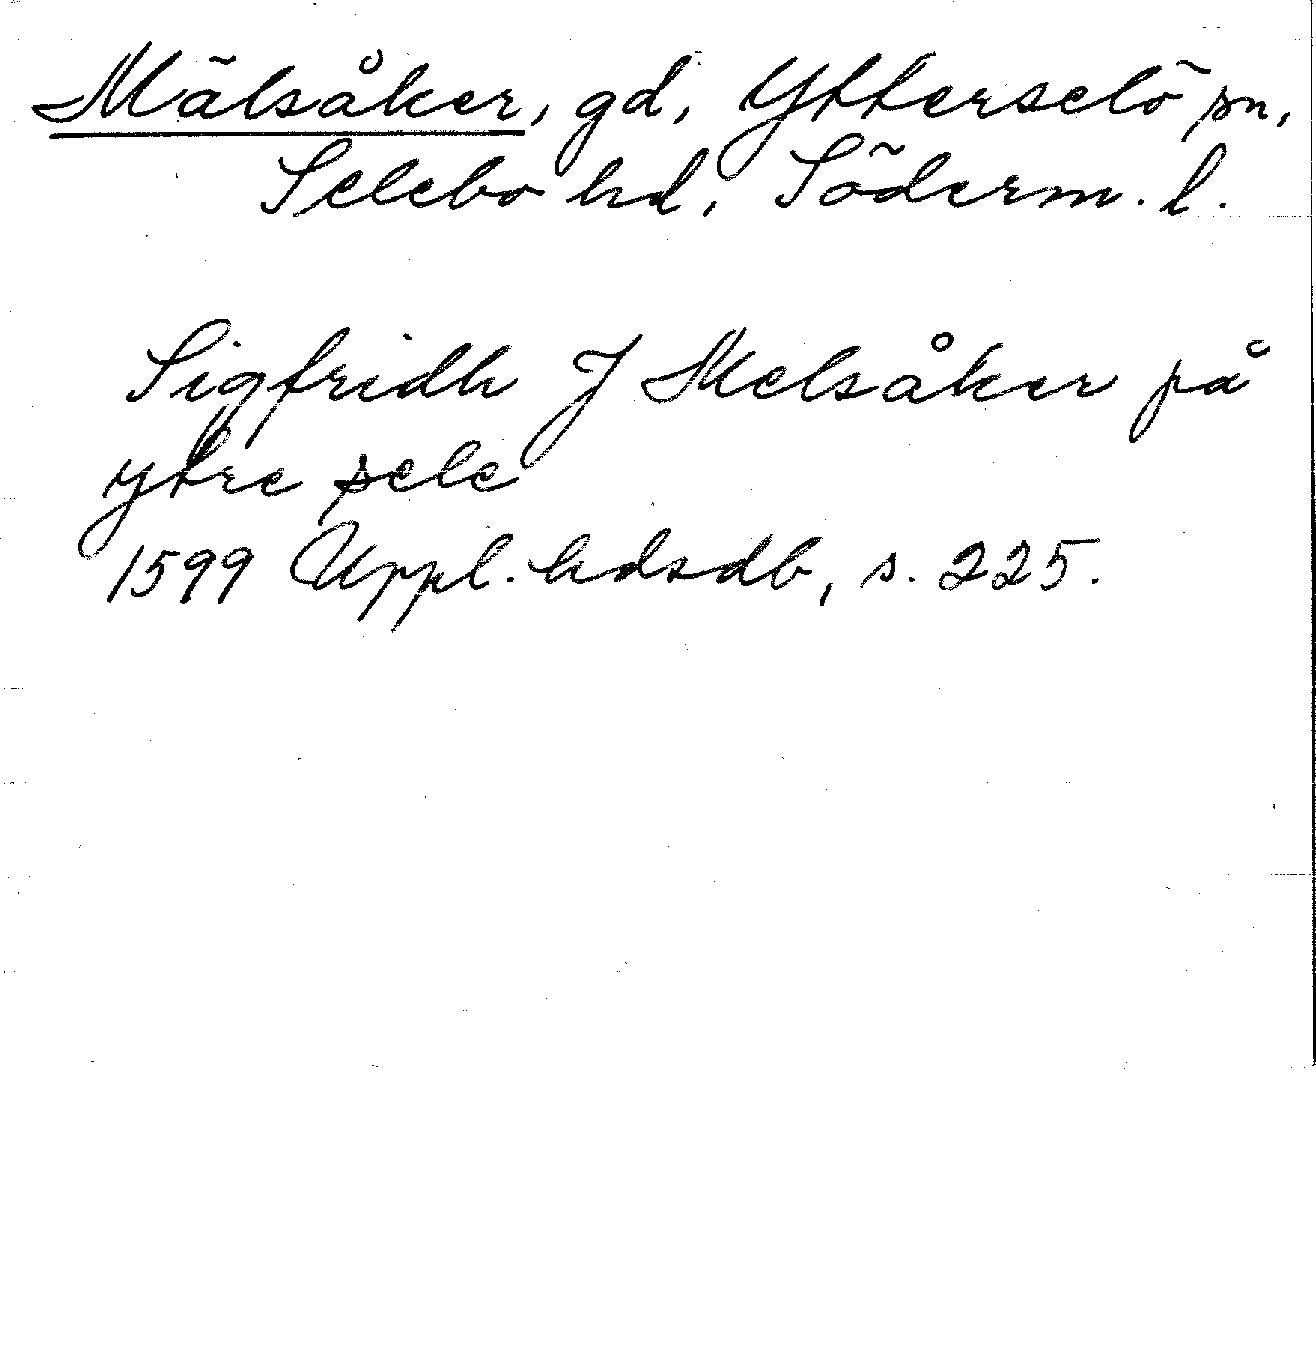 Mälsåker, gd, Ytterselö sn,
Selebo hd, Söderm. l.
Sigfridh J Melsåker på
ytre sele
1599 Uppl. hdsdb, s. 225.